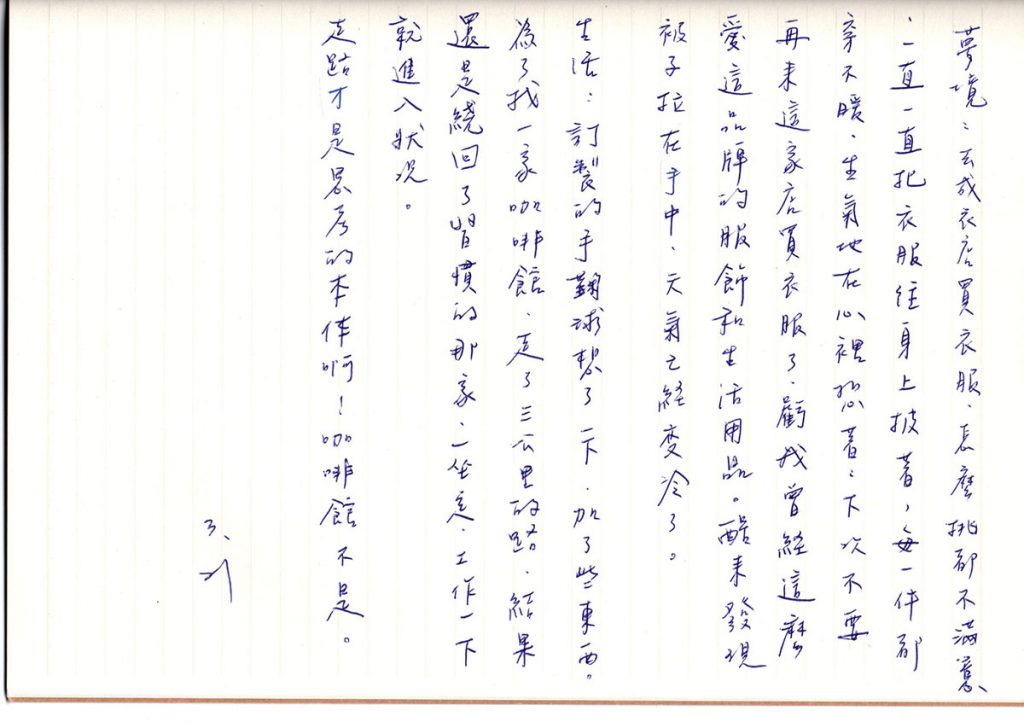 夢境：去成衣店買衣服，怎麼挑都不滿意
，一直一直把衣服往身上披著，每一件都
穿不暖，生氣地在心裡想著：下次不要
再來這家店買衣服了，虧我曾經這麼
愛這品牌的服飾和生活用品。醒來發現
被子拉在手中，天氣已經變冷了。
生活：訂製的手鞠球想了一下，加了些東西。
為了找一家咖啡館，走了三公里的路，結果
還是繞回了習慣的那家，一坐定，工作一下
就進入狀況。
走路才是思考的本体啊！咖啡館不是。